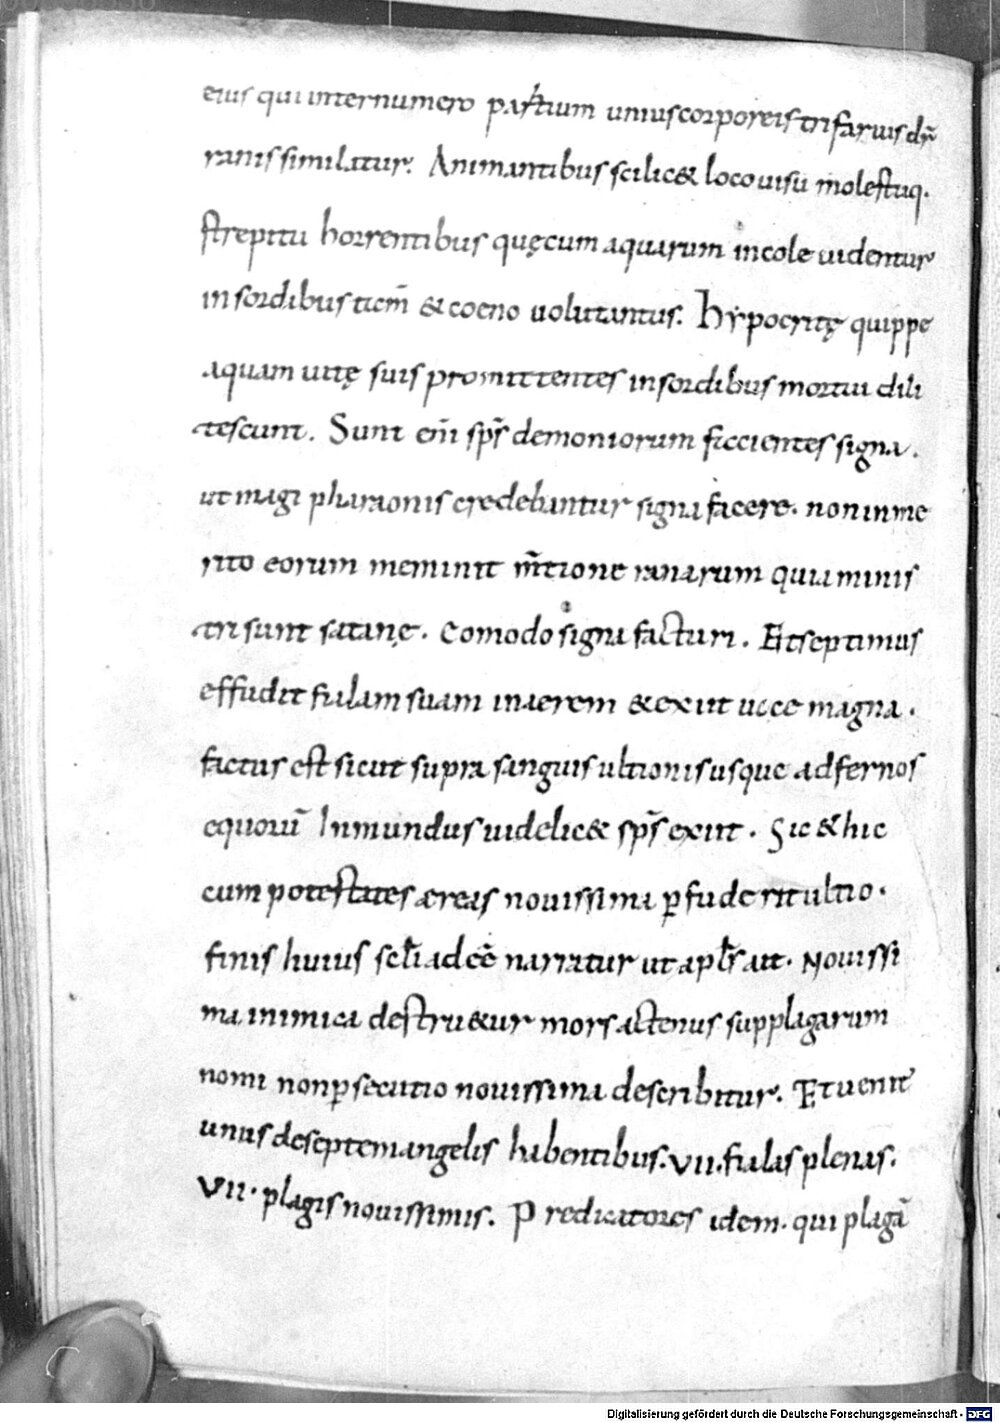 eius qui internumero partium uniuscorporeistrifariusdr̄
ranissimilatur. Animantibus scilic& locouisu molestuq.
strepitu horrentibus quęcum aquarum incole uidentur
insordibus tam̄ & coeno uolutantus. hẏpocritę quippe
aquam uitę suis promittentes insordibus mortui dili
tescunt. Sunt eni̅ sps̄ demoniorum facientes signa.
ut magi pharaonis credebantur signa facere. non inme
rito eorum meminit m̄tione ranarum quia minis
tri sunt satanę. Eomodo signa facturi. Etseptimus
effudit fialam suam inaerem & exiit uoce magna.
factus est sicut supra sanguis ultionis usque adfernos
equorū Inmundus uidelic& sps̄ exiit. Sic & hic
cum potestates aereas nouissima ꝑfuderit ultio.
finis huius scl̄i adeē narratur ut apls̄ ait. Nouissi
ma inimica destru&ur mors actenus supplagarum
nomi nonꝑsecutio nouissima describitur. Et uenit
unus deseptemangelis habentibus. VII. fialas plenas.
VII. plagis nouissimis. Predicatores idem. qui plagā
Digitalisierung gefördert durch die Deutsche Forschungsgemeinschaft - DFG